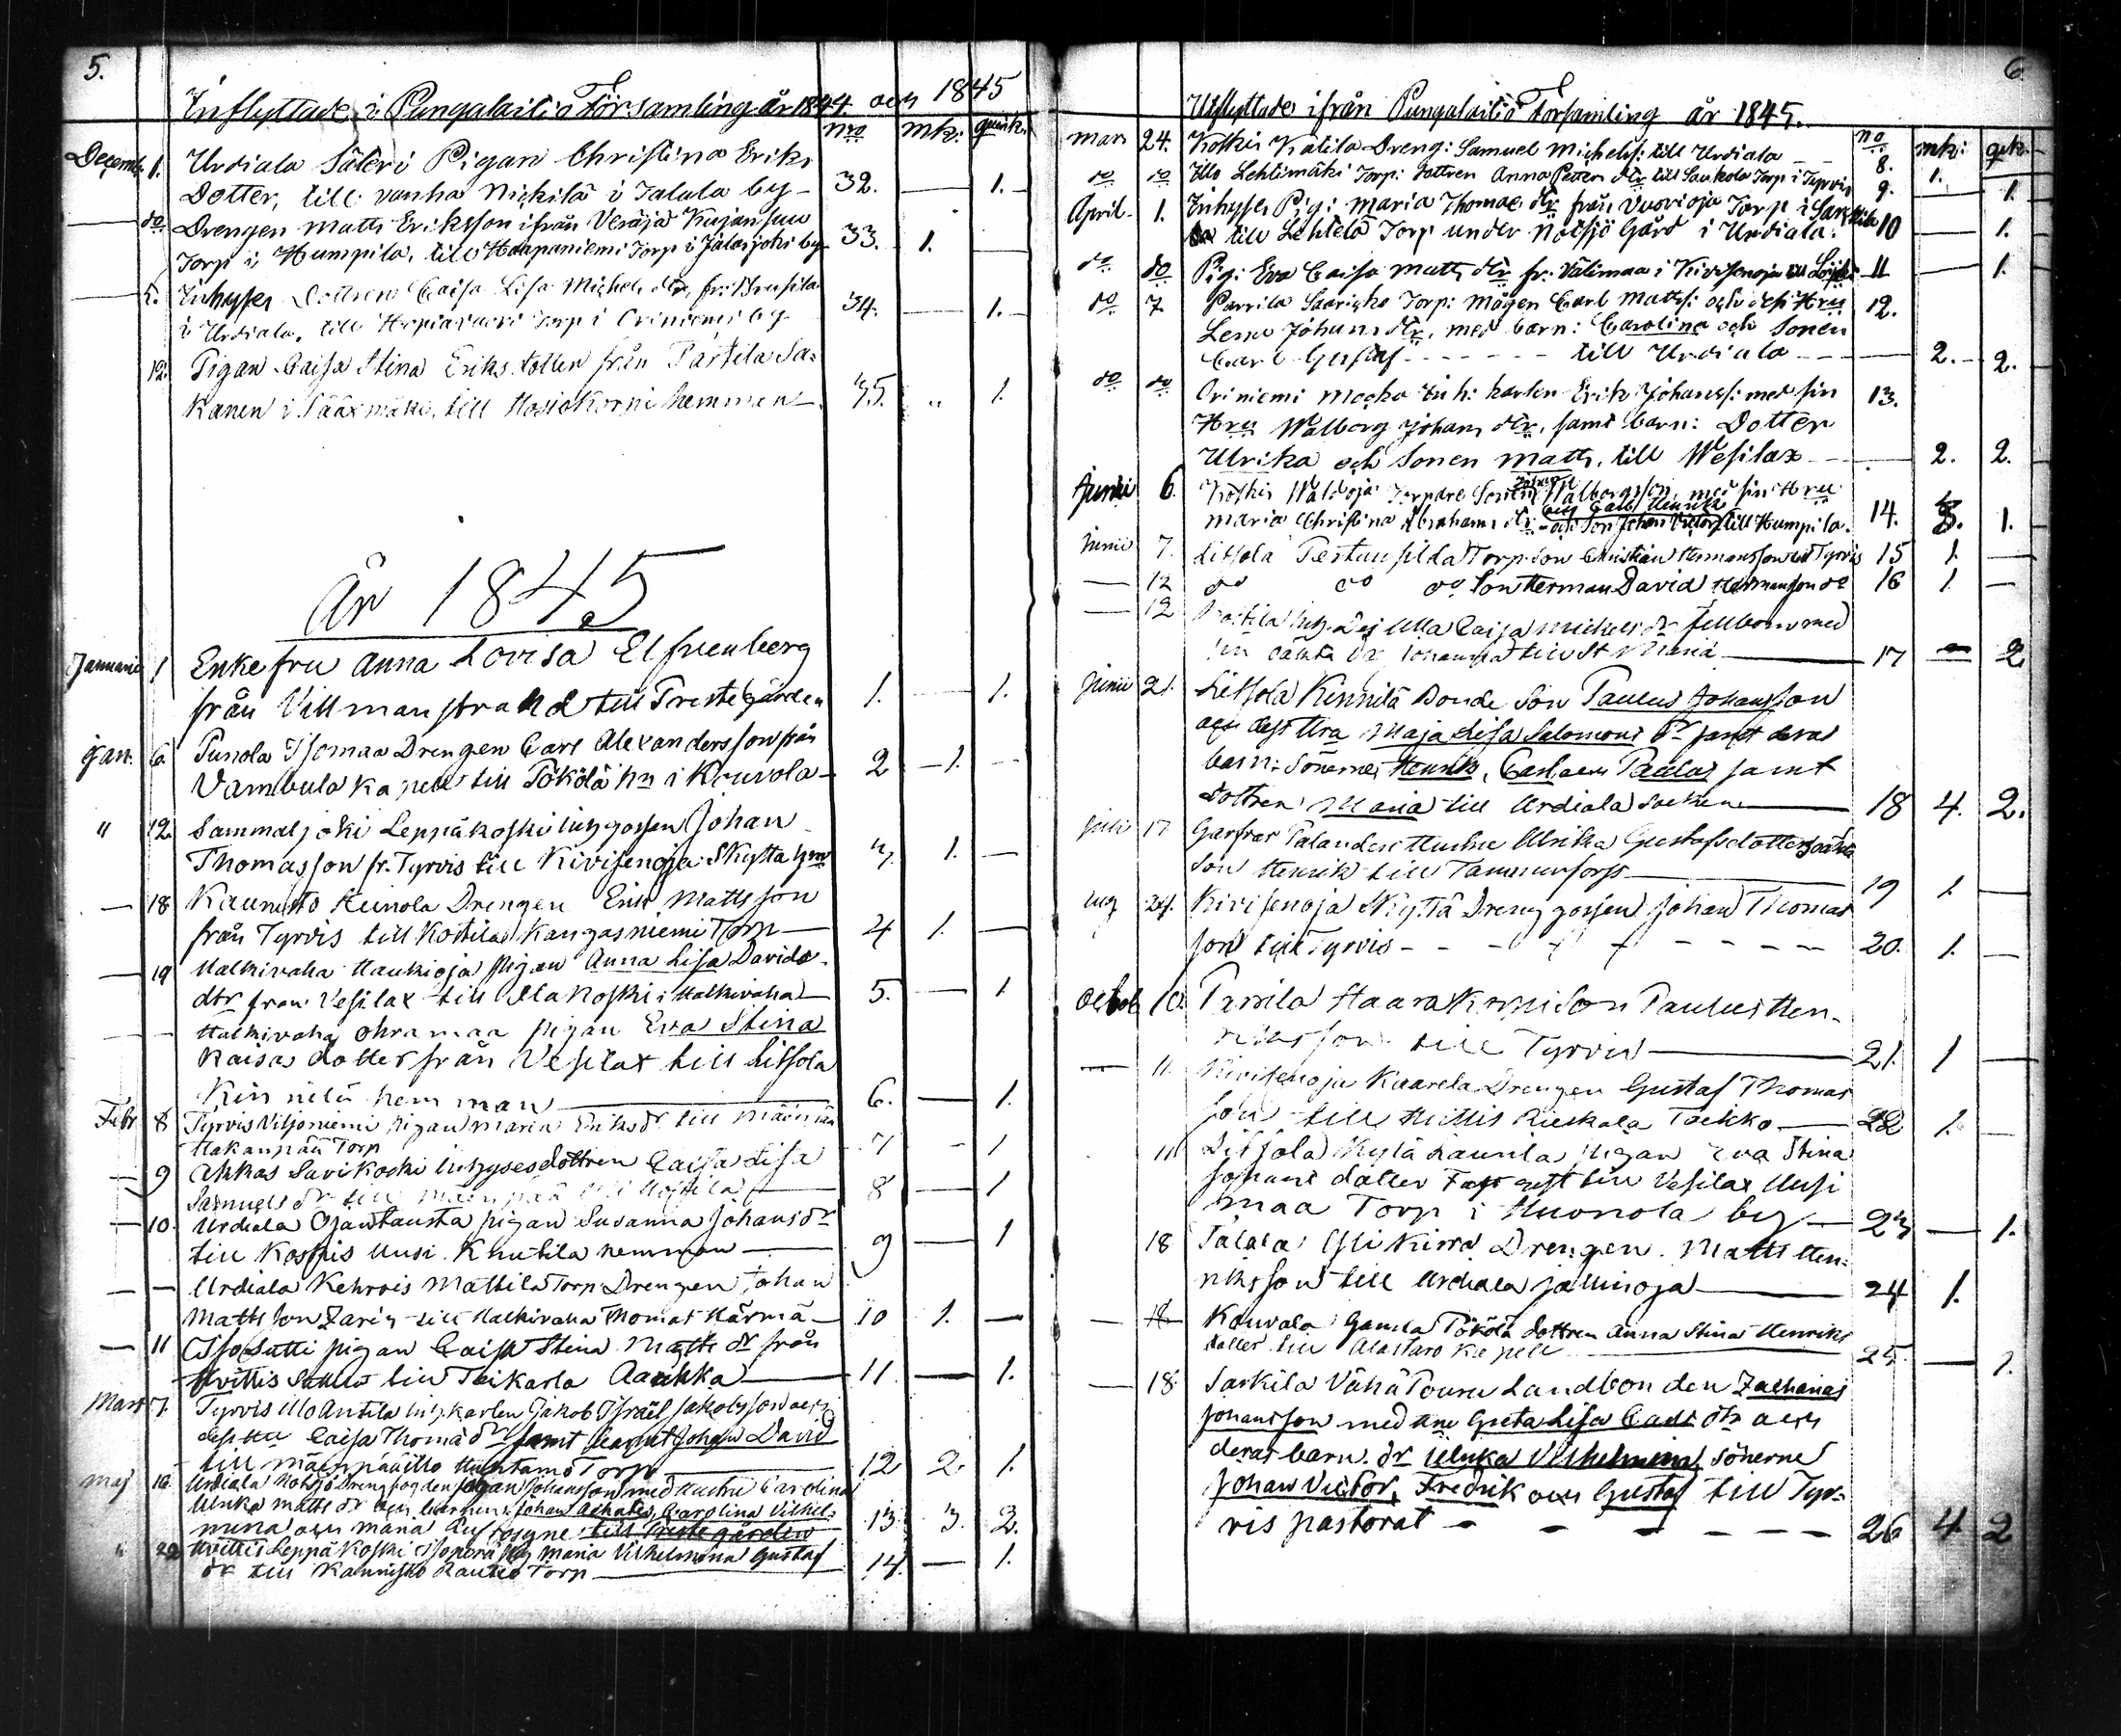 5.
Inflyttade i Pungalaitio Församling år 1844. och 1845
nro mk: qvink:
Decemb. 1. Urdiala Säteri Pigan Christina Eriks
Dotter, till vanha Nickilä i Jalala by 32. — 1.
do Drengen Matts Eriksson ifrån Veräjä Kujansuu
Torp i Humpila, till Haapaniemi Torp i Jalasjoki by 33. 1. —
5. Inhyses Dottren Caisa Lisa Michels dtr, fr:
i Urdiala, till Torp i Oriniemi by 34. — 1.
12. Pigan Caisa Stina Eriks dotter från Parttila Sa-
kanen i Sääxmäki, till hemman 35. " 1.
År 1845
Januarii 1 Enkefru Anna Lovisa Elfvenberg
från Villmanstrand till Prestegården 1. — 1.
Jan. 6. Punola Isomaa Drengen Carl Alexandersson från
Vambula kapell till Pökölä hn i Kouvola 2 1. —
" 12. Sammaljoki Leppäkoski inh gossen Johan
Thomasson fr. Tyrvis till Kivisenoja Skyttä hm 3. 1. —
— 18 Kaunisto Heinola Drengen Erik Mattsson
från Tyrvis till Kostila Kangasniemi Torp 4 1. —
— 19 Halkivaha Haukioja pigan Anna Lisa Davids
dtr från Vesilax till Alakoski i Halkivaha 5. — 1
— — Halkivaha Ohramaa pigan Eva Stina
Kaisas dotter från Vesilax till Litsola
Kinnilä hemman 6. — 1.
Febr 8 Tyrvis Viljoniemi pigan Maria Eriksdr till Mäenpää
Hakanpää Torp 7 — 1
— 9 Akkas Savikoski inhysesdottren Caisa Lisa
Samuels dr till Mäenpää 8 — 1
— 10. Urdiala Ojantausta pigan Susanna Johansdr
till Koskis Uusi Knutila hemman 9 — 1
— — Urdiala Kehrois Mattila Torp Drengen Johan
Mattsson Zarin till Halkivaha Thomas Härmä 10 1. —
— 11 Isosatti pigan Caisa Stina Matts dr från
Hvittis till Teikarla Aakkka 11 — 1.
Mars 7. Tyrvis Illo Antila inh. karlen Jakob Israel Jakobsson och
dess hu Caisa Thomä dr samt barnet Johan David
till Mäenpää Illo Torp 12 2. 1.
Maj 16 Urdiala Notsjö Drengfogden Johan Johansson med hustru Carolina
Ulrika Matts dr och barnen: Johan Achates, Carolina Vilhel-
mina och Maria Eufrosyne till Prestegården 13. 3. 2.
" Hvittis Leppäkoski pig Maria Vilhelmina Gustaf
dr till Kannisto Rautio Torp 14. — 1.
6.
Utflyttade ifrån Pungalaitio Forsamling år 1845.
no mk: qvk.
Mars 24. Koskis Katila Dreng: Samuel Michelss: till Urdiala 8. 1.
do do Illo Lehtimäki Torp: dottren Anna Petters dtr till Saukola Torp i Tyrvis 9. 1.
April 1. Inhyses Pig: Maria Thomae dtr från Vuorioja Torp i Sarkila
till Lehtelä Torp under Nötsjö Gård i Urdiala. 10 — 1.
do do Pig: Eva Caisa Matts dtr fr: Välimaa i Kivisenoja till 11 — 1.
do 7. Parrila Saarisko Torp: mågen Carl Mattss: och dess Hru
Lena Johans dtr, med barn: Carolina och Sonen
Carl Gustaf - - - till Urdiala 12. 2. 2.
do do Oriniemi Inh: karlen Erik Johanss: med sin
Hru Walborg Johans dtr, samt barn: Dotter
Ulrika och Sonen Matts, till Wesilax 13. 2. 2.
Junii 6. Koskis Waldoja Torpare Sonen Walborgsson, med sin Hru
Maria Christina Abrahams dtr och Son Johan Victor till Humpila. 14. 3. 1.
Junii 7. Litsola Torp. Son Christian Hermansson till Tyrvis 15 1. —
— 12 do do do Son Herman David Hermansson do 16 1. —
— 12 Kostila inh. Ulla Caisa Michels dr med
sin dr Johanna till St Maria 17 — 2
Junii 21. Litsola Kinnilä Bonde Son Paulus Johansson
och dess Hra Maja Lisa Salomons dr samt deras
barn: Sönerne Henrik, Carl och Paulus samt
dottren Maria till Urdiala Socken 18 4. 2.
Juli 17 Garfvar Palanders Hustru Ulrika Gustafsdotters
Son Henrik till Tammerfors 19 1. —
Aug 24. Kivisenoja Skyttä Dreng gossen Johan Thomas
son till Tyrvis 20. 1. —
October 10. Parrila Haarakorpi Son Paulus Hen-
riksson till Tyrvis 21. 1 —
— 11. Kivisenoja Kaarela Drengen Gustaf Thomas
son till Hvittis Rieskala Taekko 22 1. —
11 Litsola Kylä Laurila pigan Eva Stina
Johans dotter till Vesilax Uusi
maa Torp i Huonola by 23 — 1.
18 Jalala Drengen Matts Hen-
riksson till Urdiala Jallinoja 24 1.
— 18 Kouvola Gamla Pökölä dottren Anna Stina Henriks
dotter till Alastaro kapell 25. — 1.
— 18 Sarkila Vähä Pouru Landbonden Zacharias
Johansson med hu Greta Lisa Carls dtr och
deras barn. dr Ulrika Vilhelmina, Sönerne
Johan Victor, Fredrik och Gustaf till Tyr-
vis pastorat 26 4 2